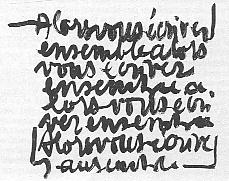 Alors vous écrivez
ensemble alors
vous écrivez
ensemble a
lors vous écri
vez ensemble
Alors vous écrivez
ensemble